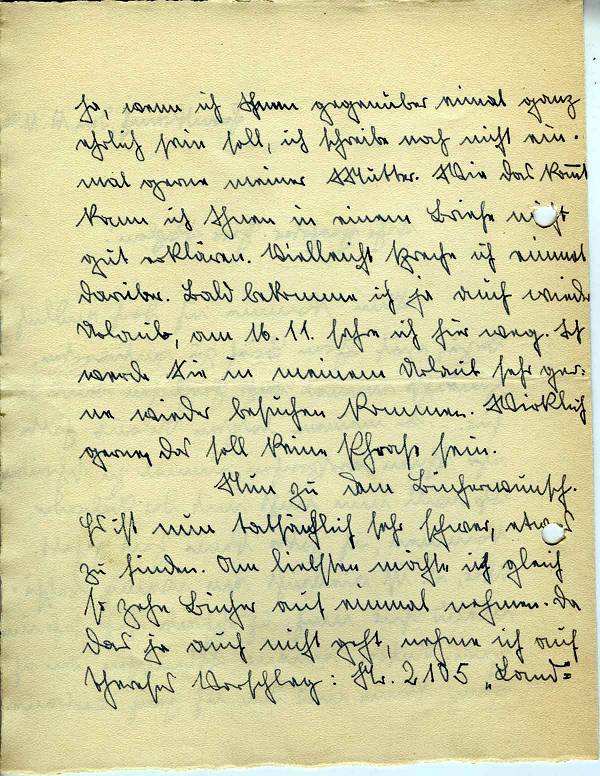 Ja, wenn ich Ihnen gegenüber einmal ganz
ehrlich sein soll, ich schreibe noch nicht ein-
mal gerne meiner Mutter. Wie das kommt
kann ich Ihnen in einem Briefe nicht
gut erklären. Vielleicht spreche ich einmal
darüber. Bald bekomme ich ja auch wieder
Urlaub, am 16.11. fahre ich hier weg. Ich
werde Sie in meinem Urlaub sehr ger-
ne wieder besuchen kommen. Wirklich
gerne, das soll keine Phrase sein.
Nun zu dem Bücherwunsch.
Es ist nun tatsächlich sehr schwer, etwas
zu finden. Am liebsten möchte ich gleich
so zehn Bücher auf einmal nehmen. Da
das ja auch nicht geht, nehme ich auf
Vorschlag: Nr. 2105 „Land-